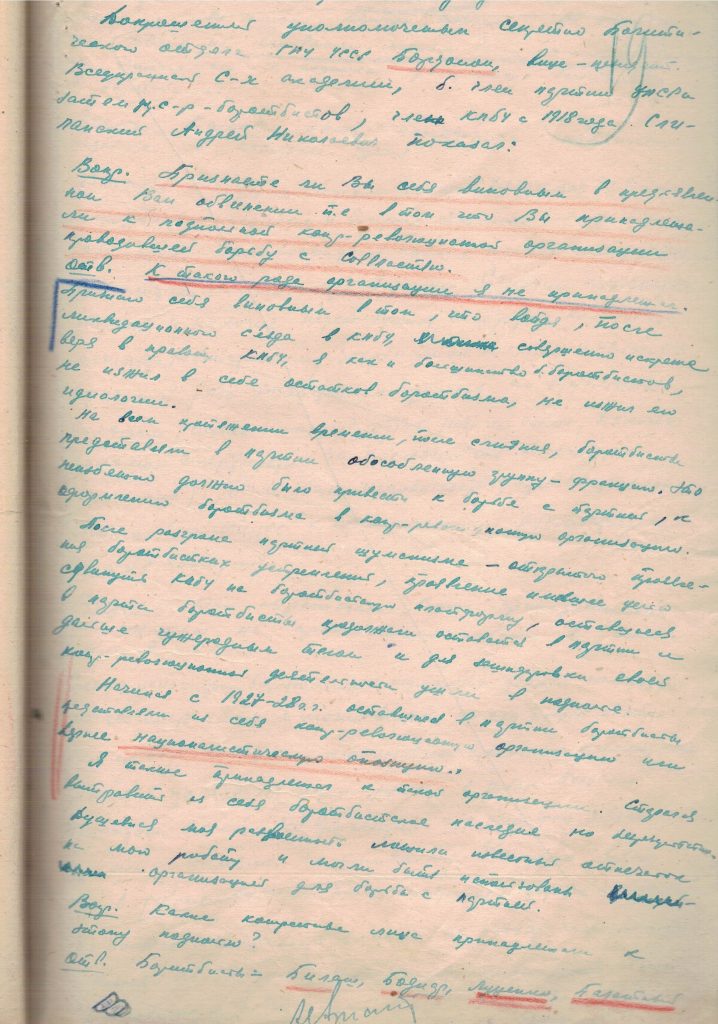 Допрошенный уполномоченным Секретно Полити-
ческого отдела ГПУ УССР вице-президент
Всеукраинской С-х академии, б. член партии УПСР а
затем у.с-р-боротьбистов, член КПбУ с 1918 года Сли-
панский Андрей Николаевич показал:
19
Вопр. Признаете ли Вы себя виновным в предъявлен-
ном Вам обвинении т.е в том что Вы принадлежа-
ли к подпольной контр-революционной организации
проводившей борьбу с Соввластью.
Отв. К такого рода организации я не принадлежал.
Признаю себя виновным в том, что войдя, после
ликвидационного съезда в КПбУ, совершенно искрене
веря в правоту КПбУ, я как и большинство б. боротьбистов,
не изжил в себе остатков боротьбизма, не изжил его
идиологии.
На всем протяжении времени, после слияния, боротьбисты
представляли в партии обособленную группу-фракцию. Это
неизбежно должно было привести к борьбе с партией, к
оформлению боротьбизма в контр-революционную организацию.
После разгрома партией шумскизма - открытого проявле-
ния боротьбистких устремлений, проявление имевшее целью
сдвинуть КПбУ на боротьбистскую платформу, оставшиеся
в партии боротьбисты продолжали оставаться в партии и
дальше чужеродным телом и для зашифровки своей
контр-революционной деятельности ушли в подполье.
Начиная с 1927-28 г.г. оставшиеся в партии боротьбисты
представляли из себя контр-революционную организацию или
вернее националистическую опозицию.
Я также принадлежал к такой организации. Старался
вытравить из себя боротьбистское наследия но безрезультатно.
Душевная моя раздвоенность ложила известный отпечаток
на мою работу и могли быть использованы
организацией для борьбы с партией.
Вопр. Какие конкретные лица принадлежали к
этому подполью?
Отв. Боротьбисты -